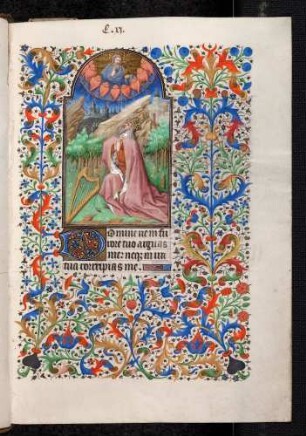 C. 11.
Domine ne in fu
rore tuo arguas
me: neq; in ira
tua corripias me.